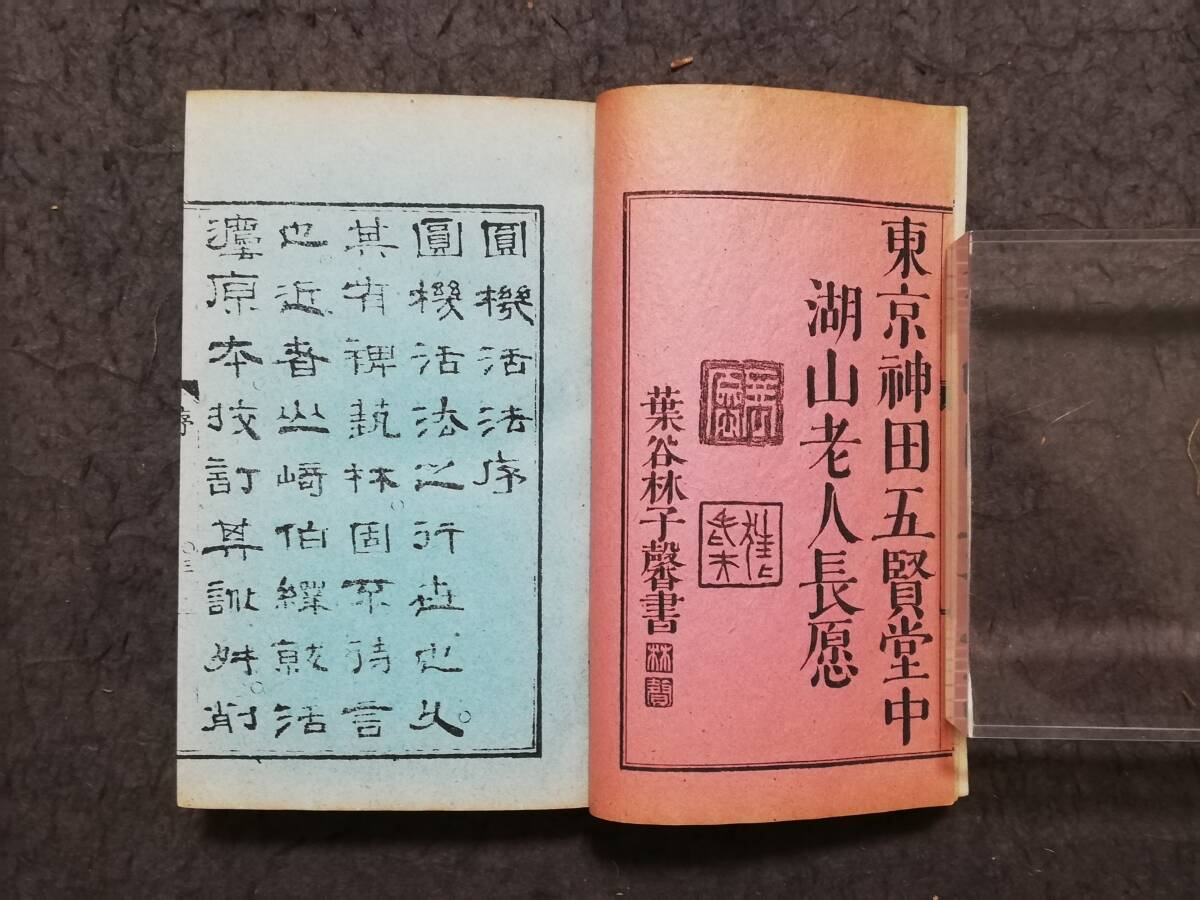 東京神田五賢堂中
湖山老人長愿
葉谷林子馨書
圓機活法序
圓機活法之行世也久
其有裨藝林固不待言
也近者山崎伯繹就活
原本挍訂其訛舛削
序